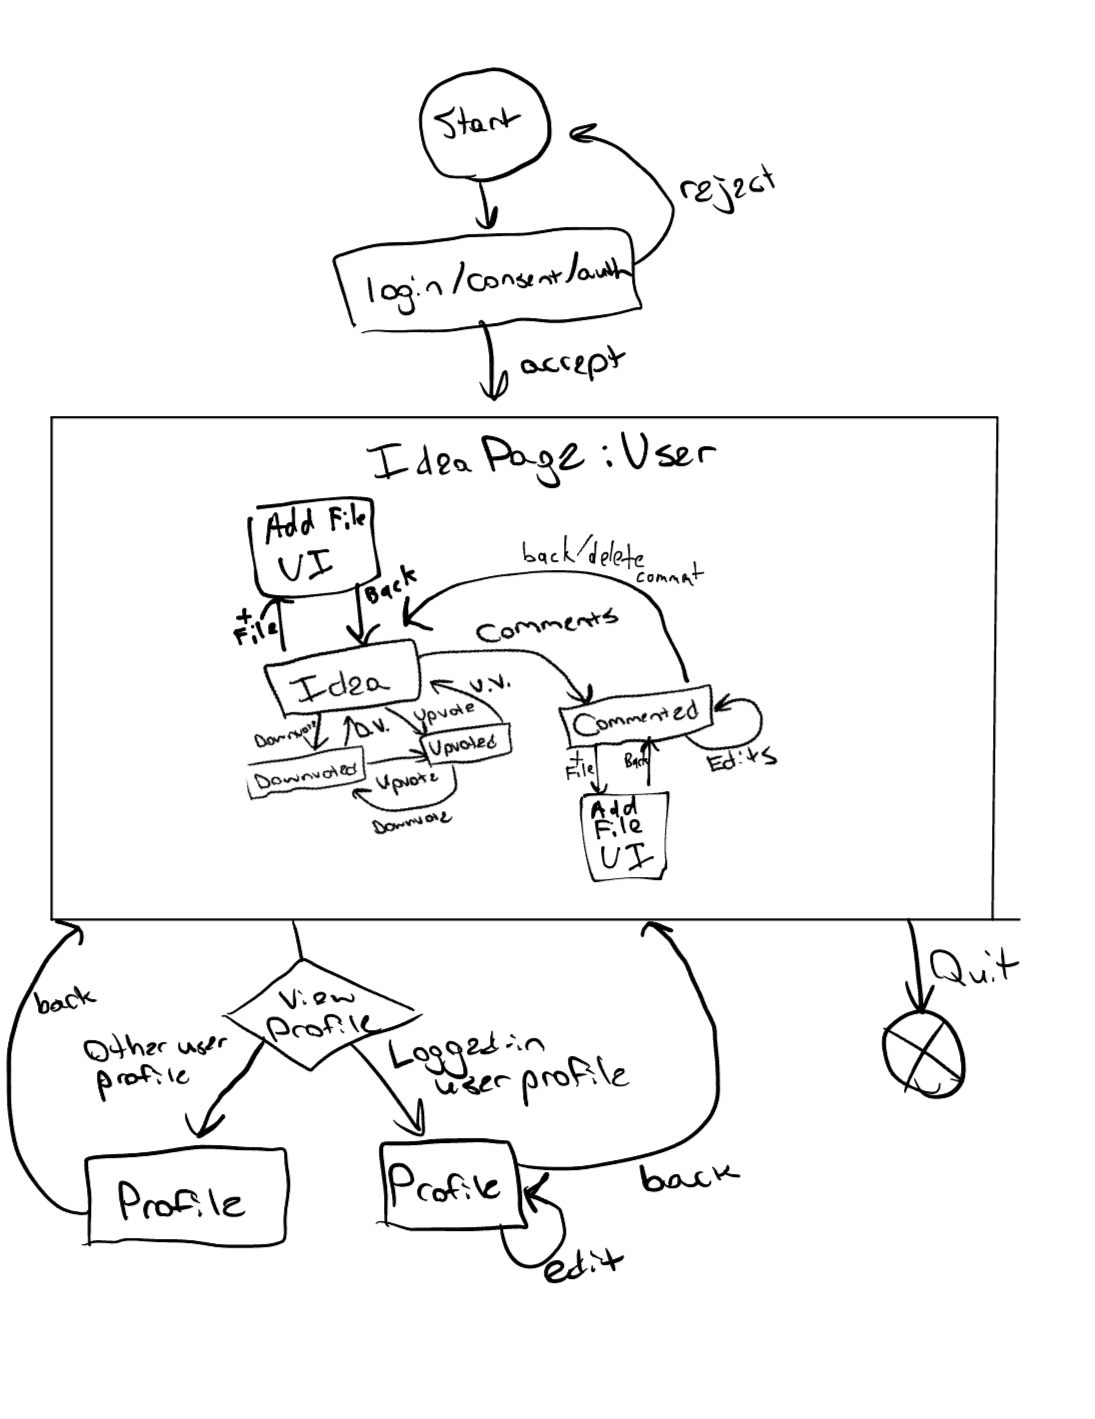 Start
reject
login/consent/auth
accept
Idea Page: User
Add File
UI
back/delete
comment
Back
+
File
Comments
Idea
U.V.
Upvote
Downvote
D.V.
Upvoted
Commented
Downvoted
Upvote
Downvote
+
File
Back
Edits
Add
File
UI
back
View
Profile
Quit
Other user
profile
Logged-in
user profile
Profile
Profile
back
edit